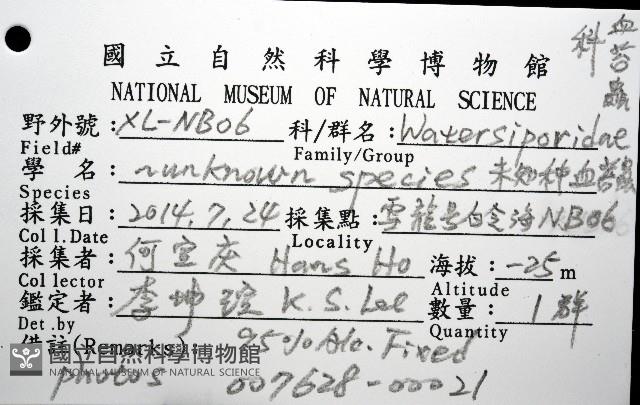 血苔蟲科
國立自然科學博物館
NATIONAL MUSEUM OF NATURAL SCIENCE
野外號:XL-NB06 科/群名:Watersiporidae
Field# Family/Group
學名:~unknown species 未知種血苔蟲
Species
採集日:2014.7.24 採集點:雪龍島白令海NB06
Coll.Date Locality
採集者:何宣慶 Hans Ho 海拔:-25m
Collector Altitude
鑑定者:李坤瑄 K.S. Lee 數量:1群
Det.by Quantity
備註(Remarks): 95% Alc. Fixed
photos 007628-00021
國立自然科學博物館
NATIONAL MUSEUM OF NATURAL SCIENCE